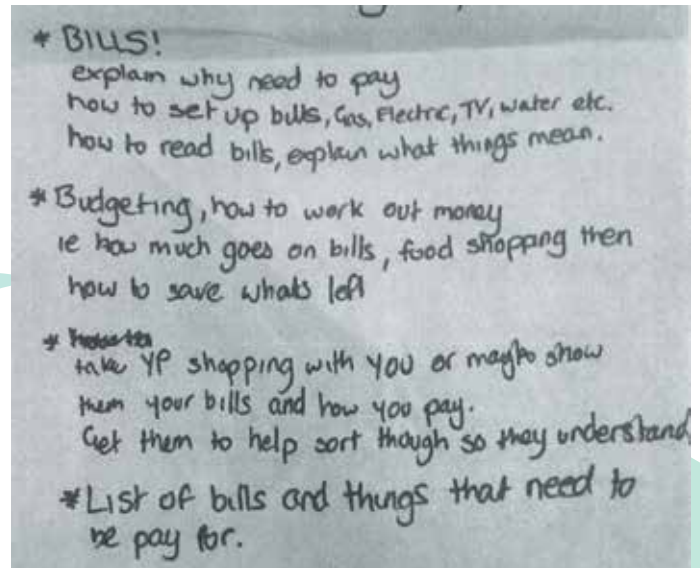 * BILLS!
explain why need to pay
how to set up bills, Gas, Electric, TV, water etc.
how to read bills, explain what things mean.
* Budgeting, how to work out money
ie how much goes on bills, food shopping then
how to save whats left
*
take YP shopping with you or maybe show
them your bills and how you pay.
Get them to help sort though so they understand
* List of bills and things that need to
be pay for.